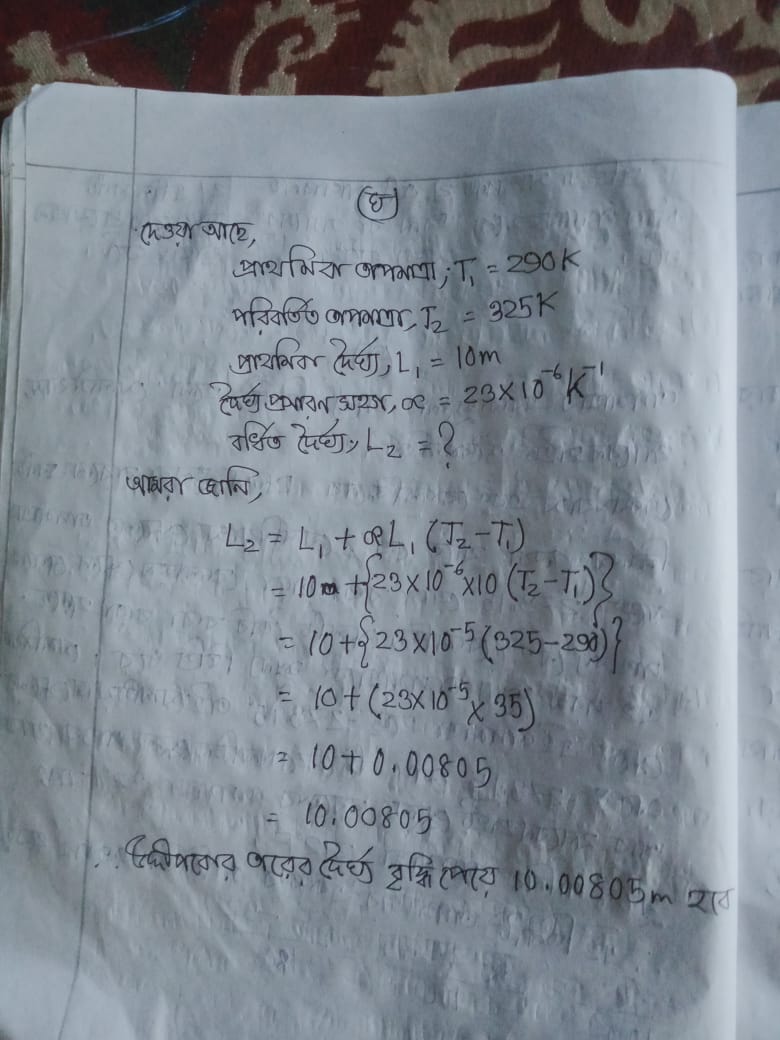 ঘ
দেওয়া আছে,
প্রাথমিক তাপমাত্রা, T₁ = 290K
পরিবর্তিত তাপমাত্রা, T₂ = 325K
প্রাথমিক দৈর্ঘ্য, L₁ = 10m
দৈর্ঘ্য প্রসারন সহগ, α = 23×10⁻⁶ K⁻¹
বর্ধিত দৈর্ঘ্য, L₂ = ?
আমরা জানি,
L₂ = L₁ + αL₁ (T₂-T₁)
= 10 + {23×10⁻⁶×10 (T₂-T₁)}
= 10+{23×10⁻⁵ (325-290)}
= 10+(23×10⁻⁵ × 35)
= 10+0.00805
= 10.00805
∴ উদ্দীপকের তারের দৈর্ঘ্য বৃদ্ধি পেয়ে 10.00805m হবে